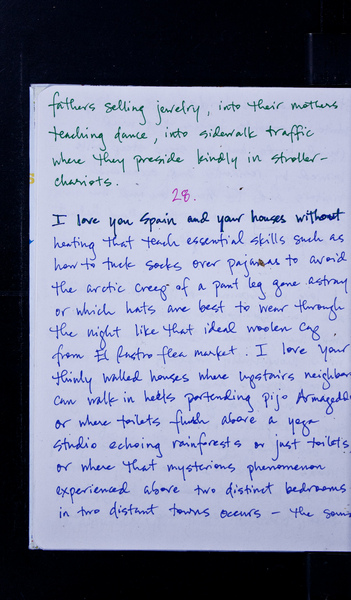 fathers selling jewelry, into their mothers
teaching dance, into sidewalk traffic
where they preside kindly in stroller-
chariots.
28.
I love you Spain and your houses without
heating that teach essential skills such as
how to tuck socks over pajamas to avoid
the arctic creep of a pant leg gone astray
or which hats are best to wear through
the night like that ideal woolen cap
from El Rastro flea market. I love your
thinly walled houses where upstairs neighbor
can walk in heels portending pijo Armagedd
or where toilets flush above a yoga
studio echoing rainforests or just toilets
or where that mysterious phenomenon
experienced above two distinct bedrooms
in two distant towns occurs - the